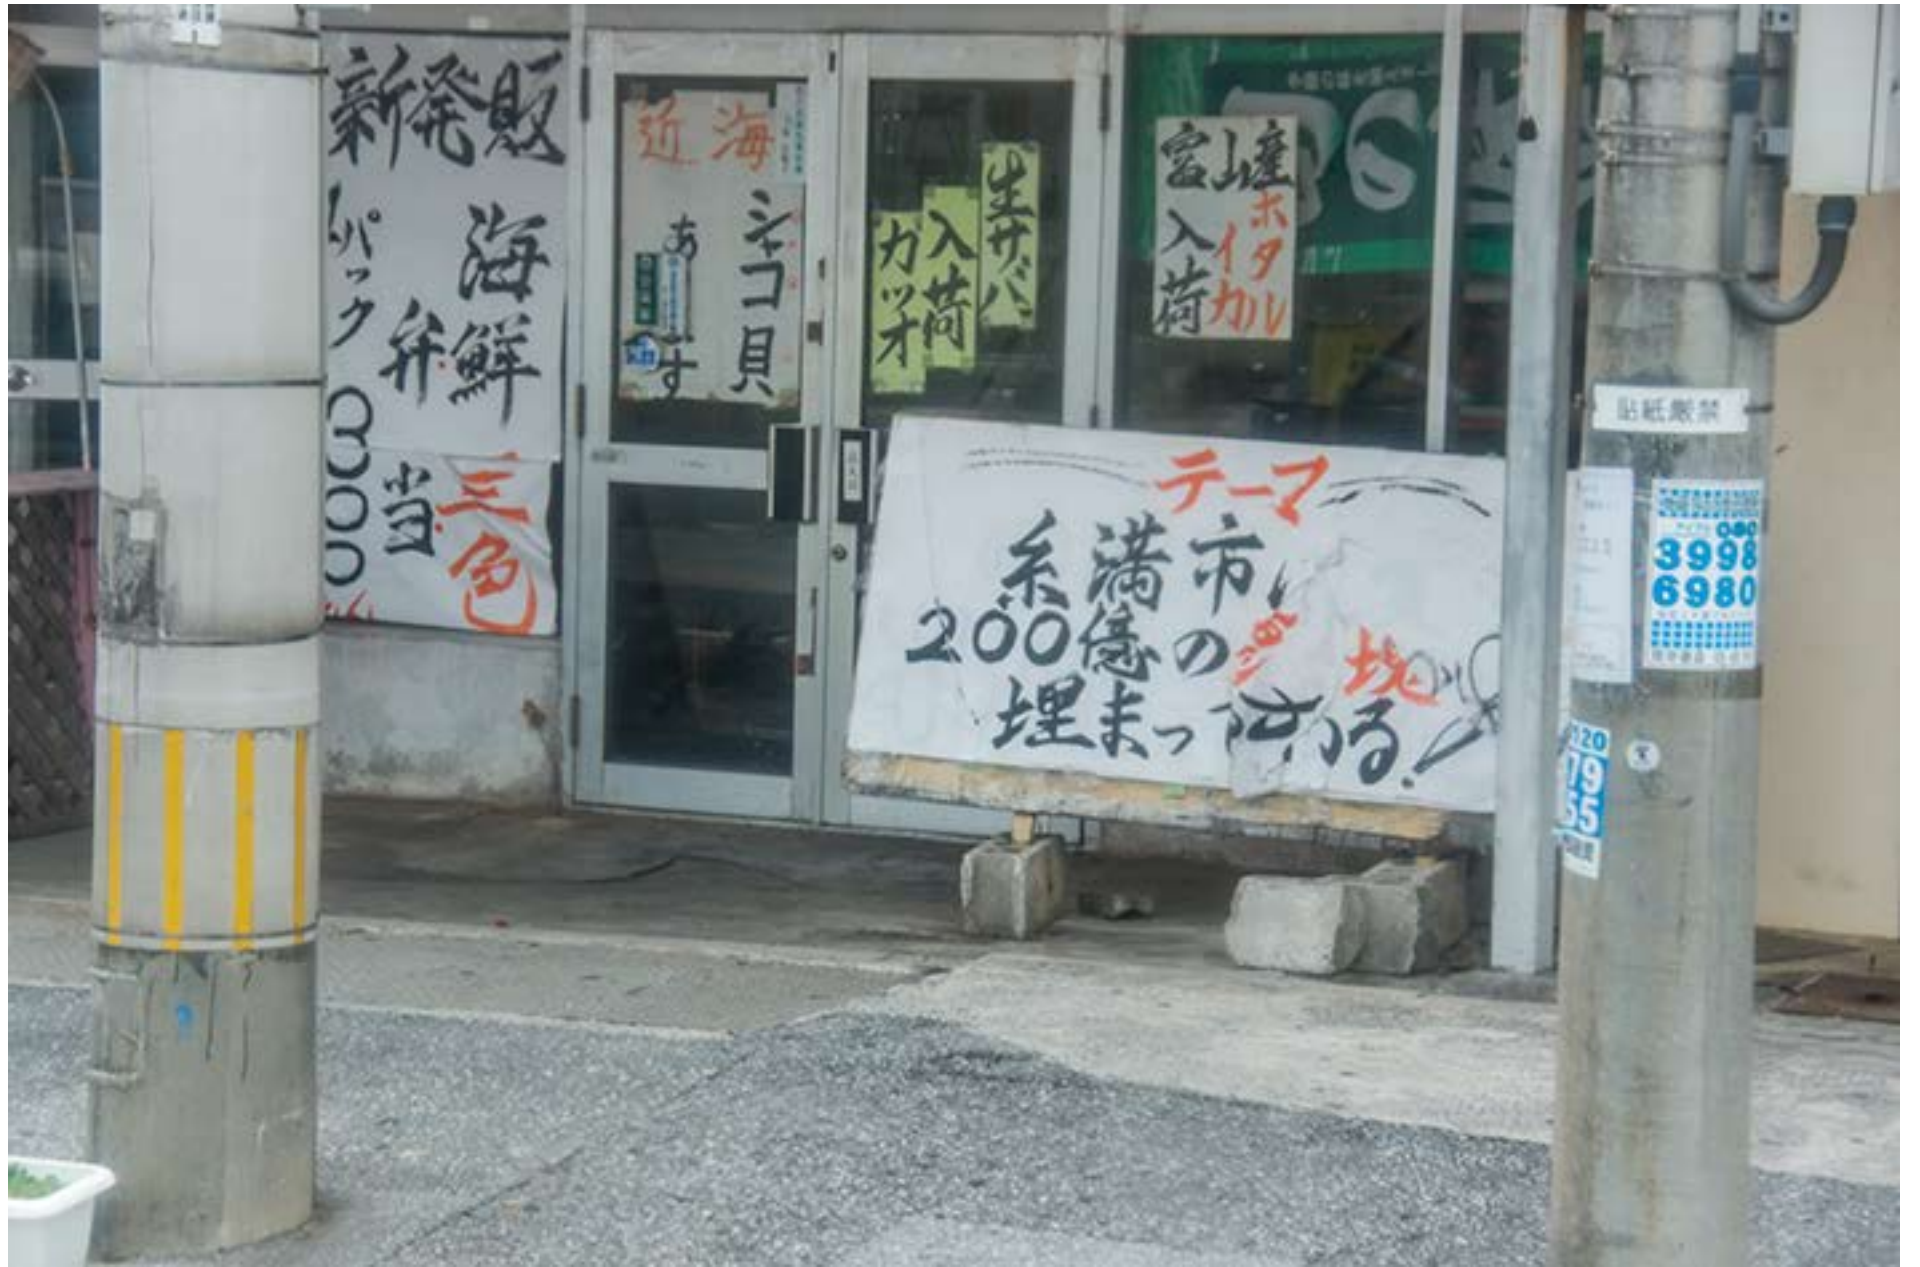 新発販
海鮮
弁当
三色
パック
300
近海
シャコ貝
あ
す
生サバ
入荷
カツオ
富山産
ホタル
イカ
入荷
テーマ
糸満市
200億の
埋まっ
る!
貼紙厳禁
3998
6980
120
79
55